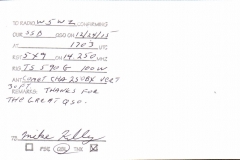 TO RADIO W5WZ CONFIRMING
OUR SSB QSO ON 12/24/15
AT 1703 UTC
RST 5X9 ON 14.250 MHZ
RIG TS 590 G 100W
ANT COMET CHA 250BX VERT
30FT
REMARKS: THANKS FOR
THE GREAT QSO.
TO Mike Kelly
PSE QSL TNX